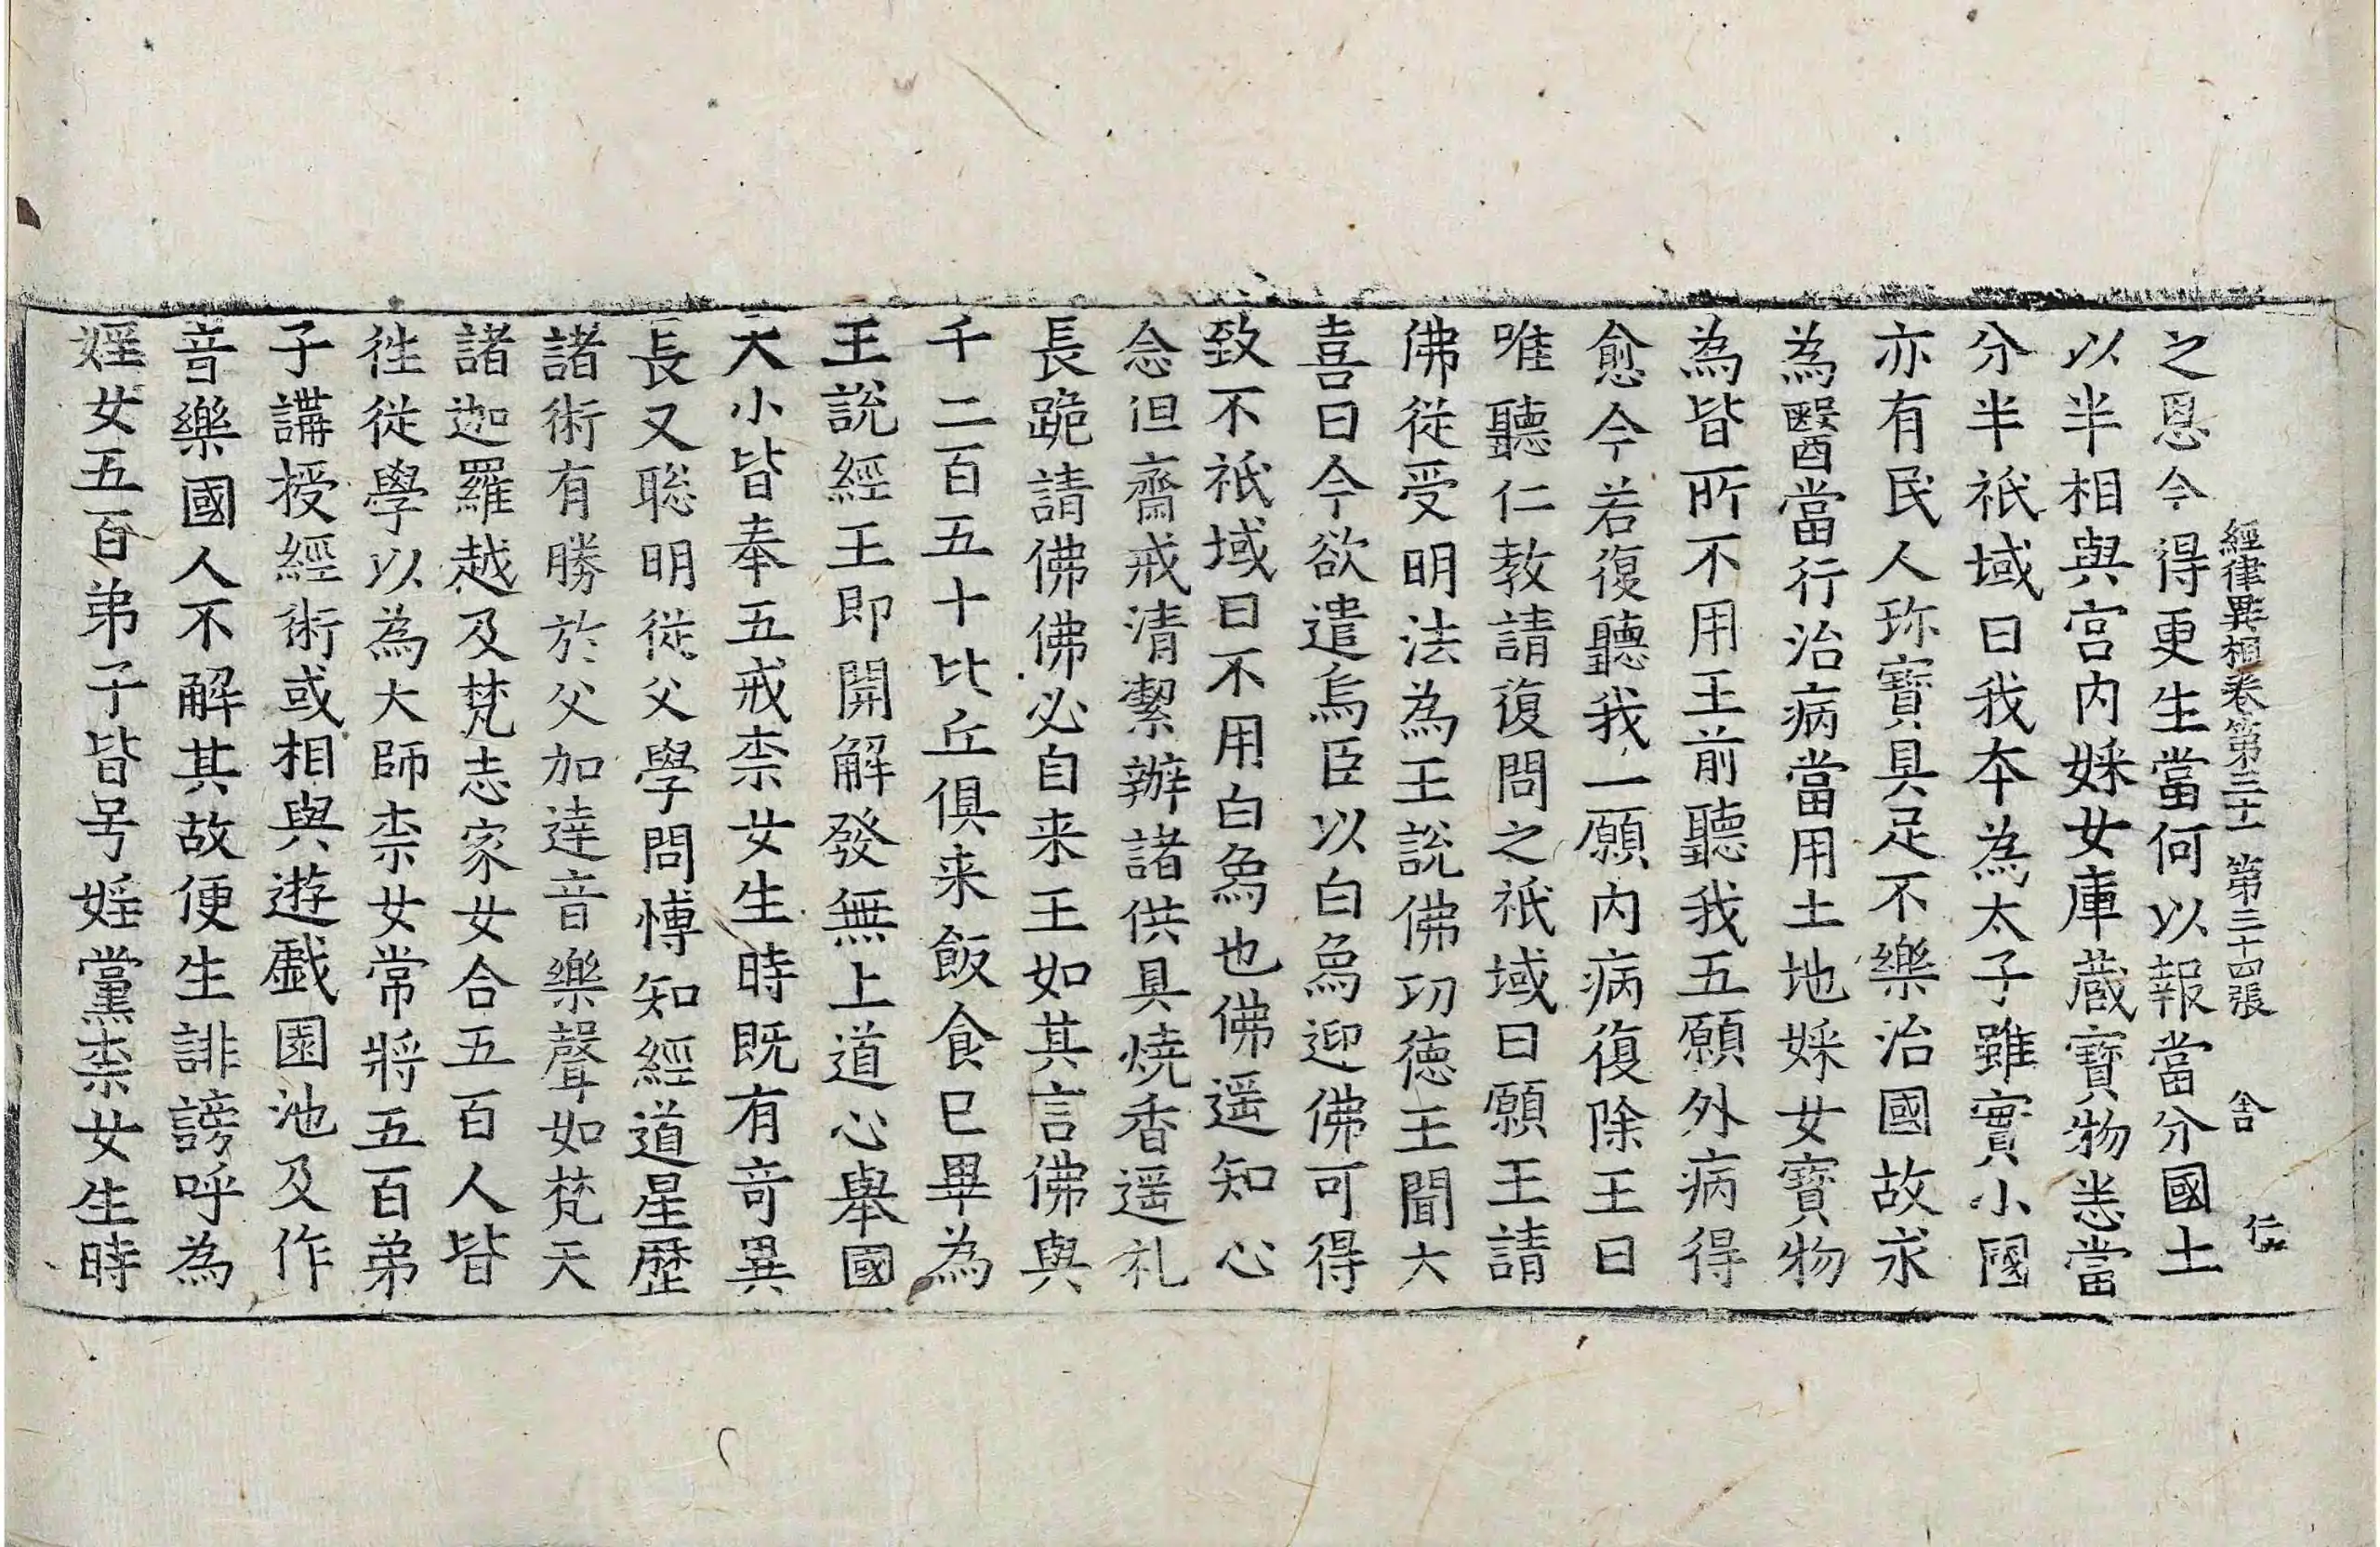 經律異相卷第三十一 第三十四張 舎 仁
之恩今得更生當何以報當分國土
以半相與宮内婇女庫蔵寳物悉當
分半祇域曰我夲為太子雖實小國
亦有民人珎寳具足不樂治國故求
為醫當行治病當用土地婇女寳物
為皆所不用王前聽我五願外病得
愈今若復聽我一願内病復除王曰
唯聽仁教請復問之祇域曰願王請
佛從受明法為王說佛功徳王聞大
喜曰今欲遣烏臣以白象迎佛可得
致不祇域曰不用白象也佛遥知心
念但齋戒清潔辦諸供具燒香遥礼
長跪請佛佛必自来王如其言佛與
千二百五十比丘俱来飯食已畢為
王說經王即開解發無上道心舉國
大小皆奉五戒柰女生時既有竒異
長又聡明從父學問愽知經道星歴
諸術有勝於父加達音樂聲如梵天
諸迦羅越及梵志家女合五百人皆
徃從學以為大師柰女常將五百弟
子講授經術或相與遊戱園池及作
音樂國人不解其故便生誹謗呼為
婬女五百弟子皆号婬黨柰女生時